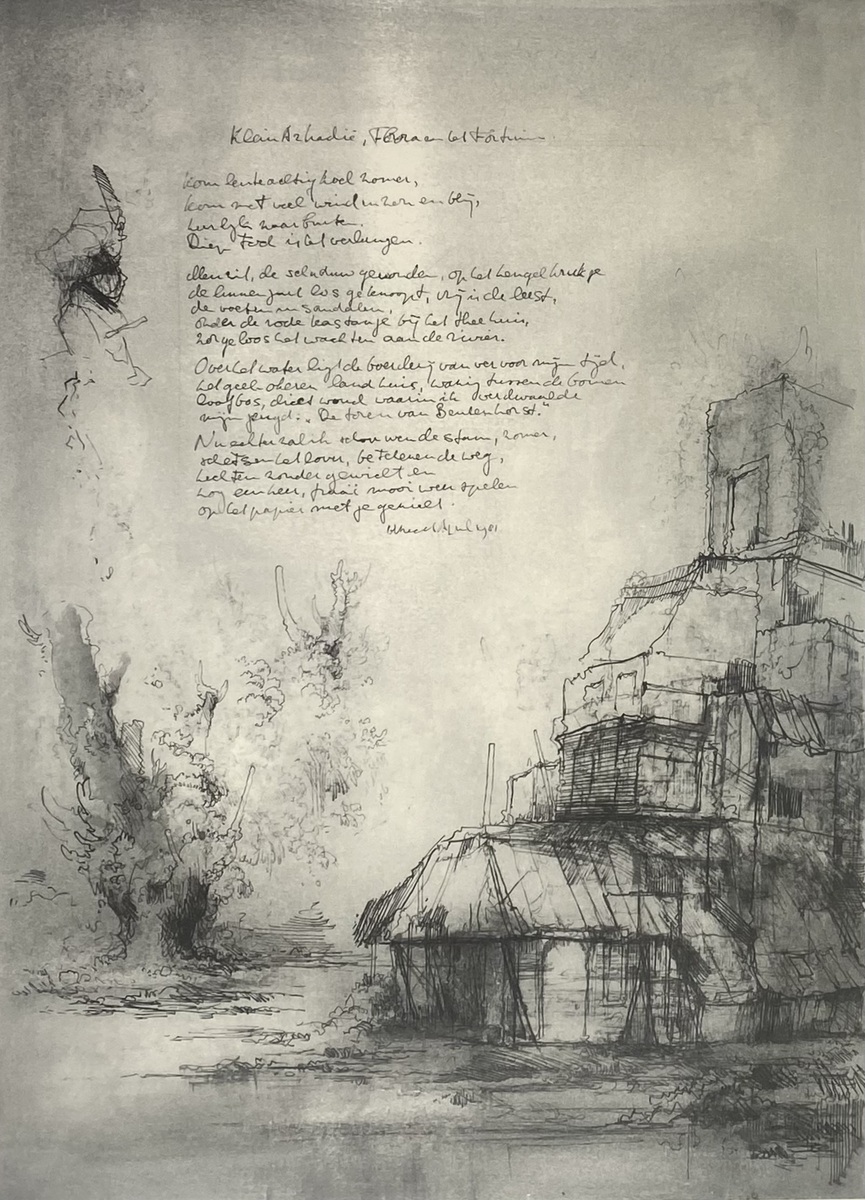 Klein Arkadië, Flora en het Fortuin
kom lenteachtig koel zomer,
kom met veel wind in zon en blij,
heerlijk naar buiten.
Diep rood is het verlangen.
de schaduw geworden, op het hengelkrukje
de linnen jurk los geknoopt, vrij is de leest,
de voeten in sandalen,
onder de rode kastanje bij het theehuis,
zorgeloos het wachten aan de rivier.
Over het water ligt de boerderij van ver voor mijn tijd,
het geel okeren landhuis, warig tussen de bomen
loofbos, dicht woud waarin ik verdwaalde
mijn jeugd: "De toren van Beukenhorst."
Nu echter zal ik schouwen de stam, zomer,
schetsen het lover, betekenen de weg,
hechten zonder gewicht en
nog een keer, fraai mooi weer spelen
op het papier met je geniet.